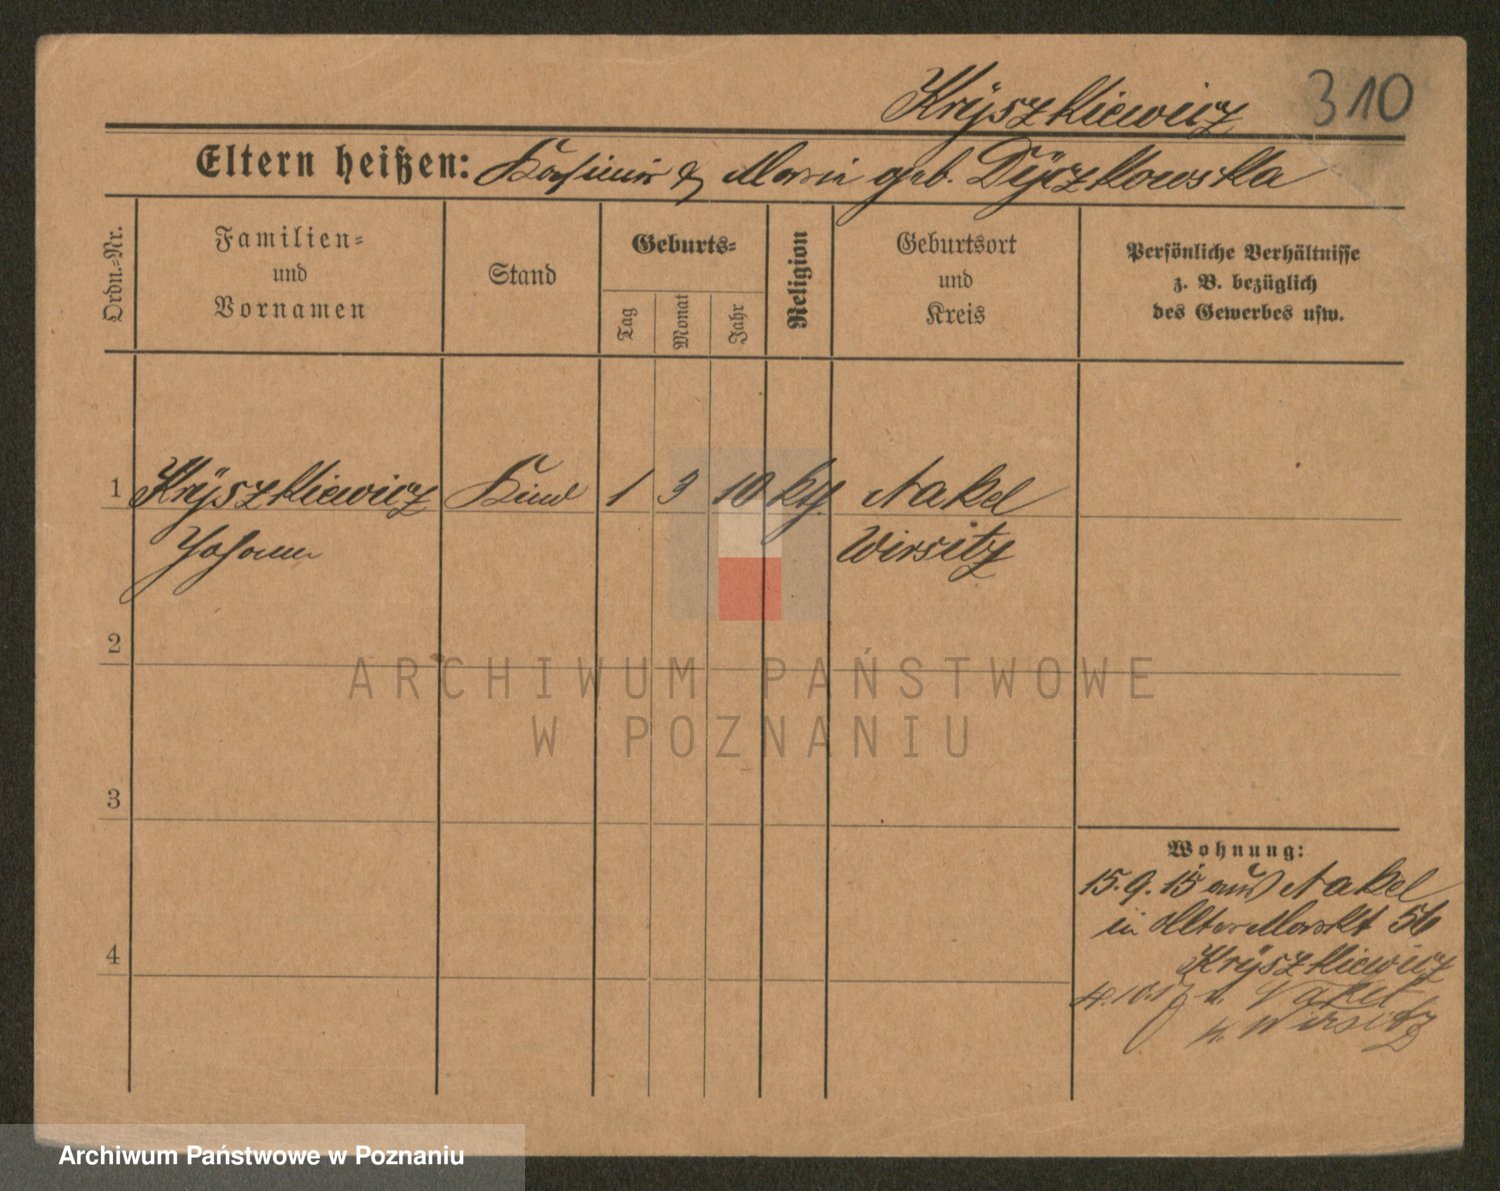 Kryszkiewicz 310
Eltern heißen: Kasimir & Marie geb. Dyczkowska
Ordn.-Nr.
Familien-
und
Vornamen
Stand
Geburts-
Tag Monat Jahr
Religion
Geburtsort
und
Kreis
Persönliche Verhältnisse
z. B. bezüglich
des Gewerbes usw.
1 Kryszkiewicz Kind 1 3 10 kth. Nakel
Johann Wirsitz
2
3
4
Wohnung:
15.9.15 aus Nakel
in Alter Markt 56
Kryszkiewicz
4.10.17 n. Nakel
K. Wirsitz
ARCHIWUM PAŃSTWOWE
W POZNANIU
Archiwum Państwowe w Poznaniu